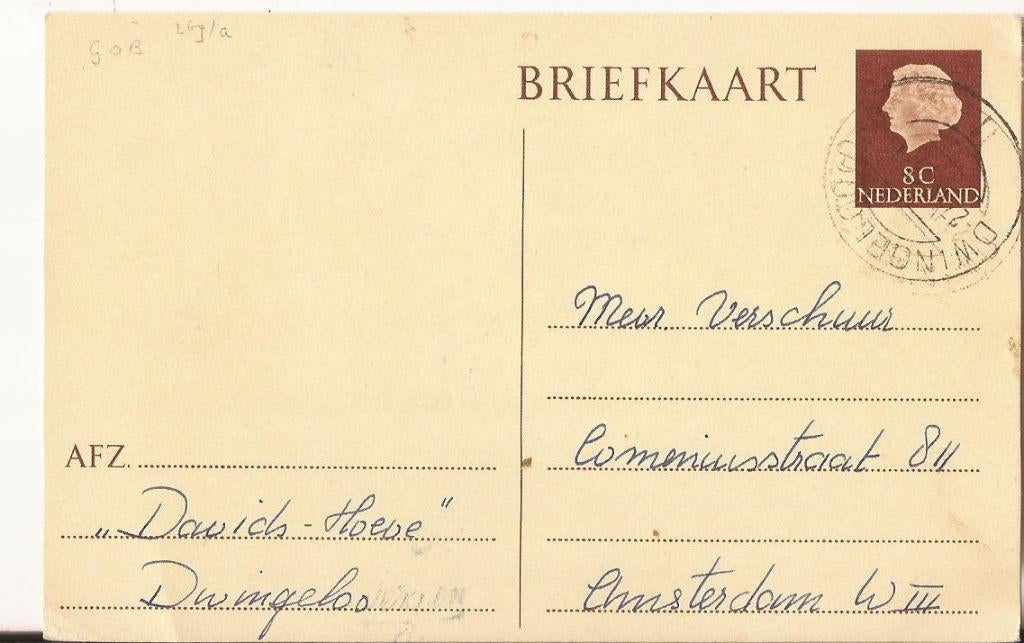 GOB 26J/a
BRIEFKAART
8 C
NEDERLAND
DWINGELOO
Mevr. Verschuur
Comeniusstraat 8 II
Amsterdam W III
AFZ.
„Davids-Hoeve"
Dwingeloo